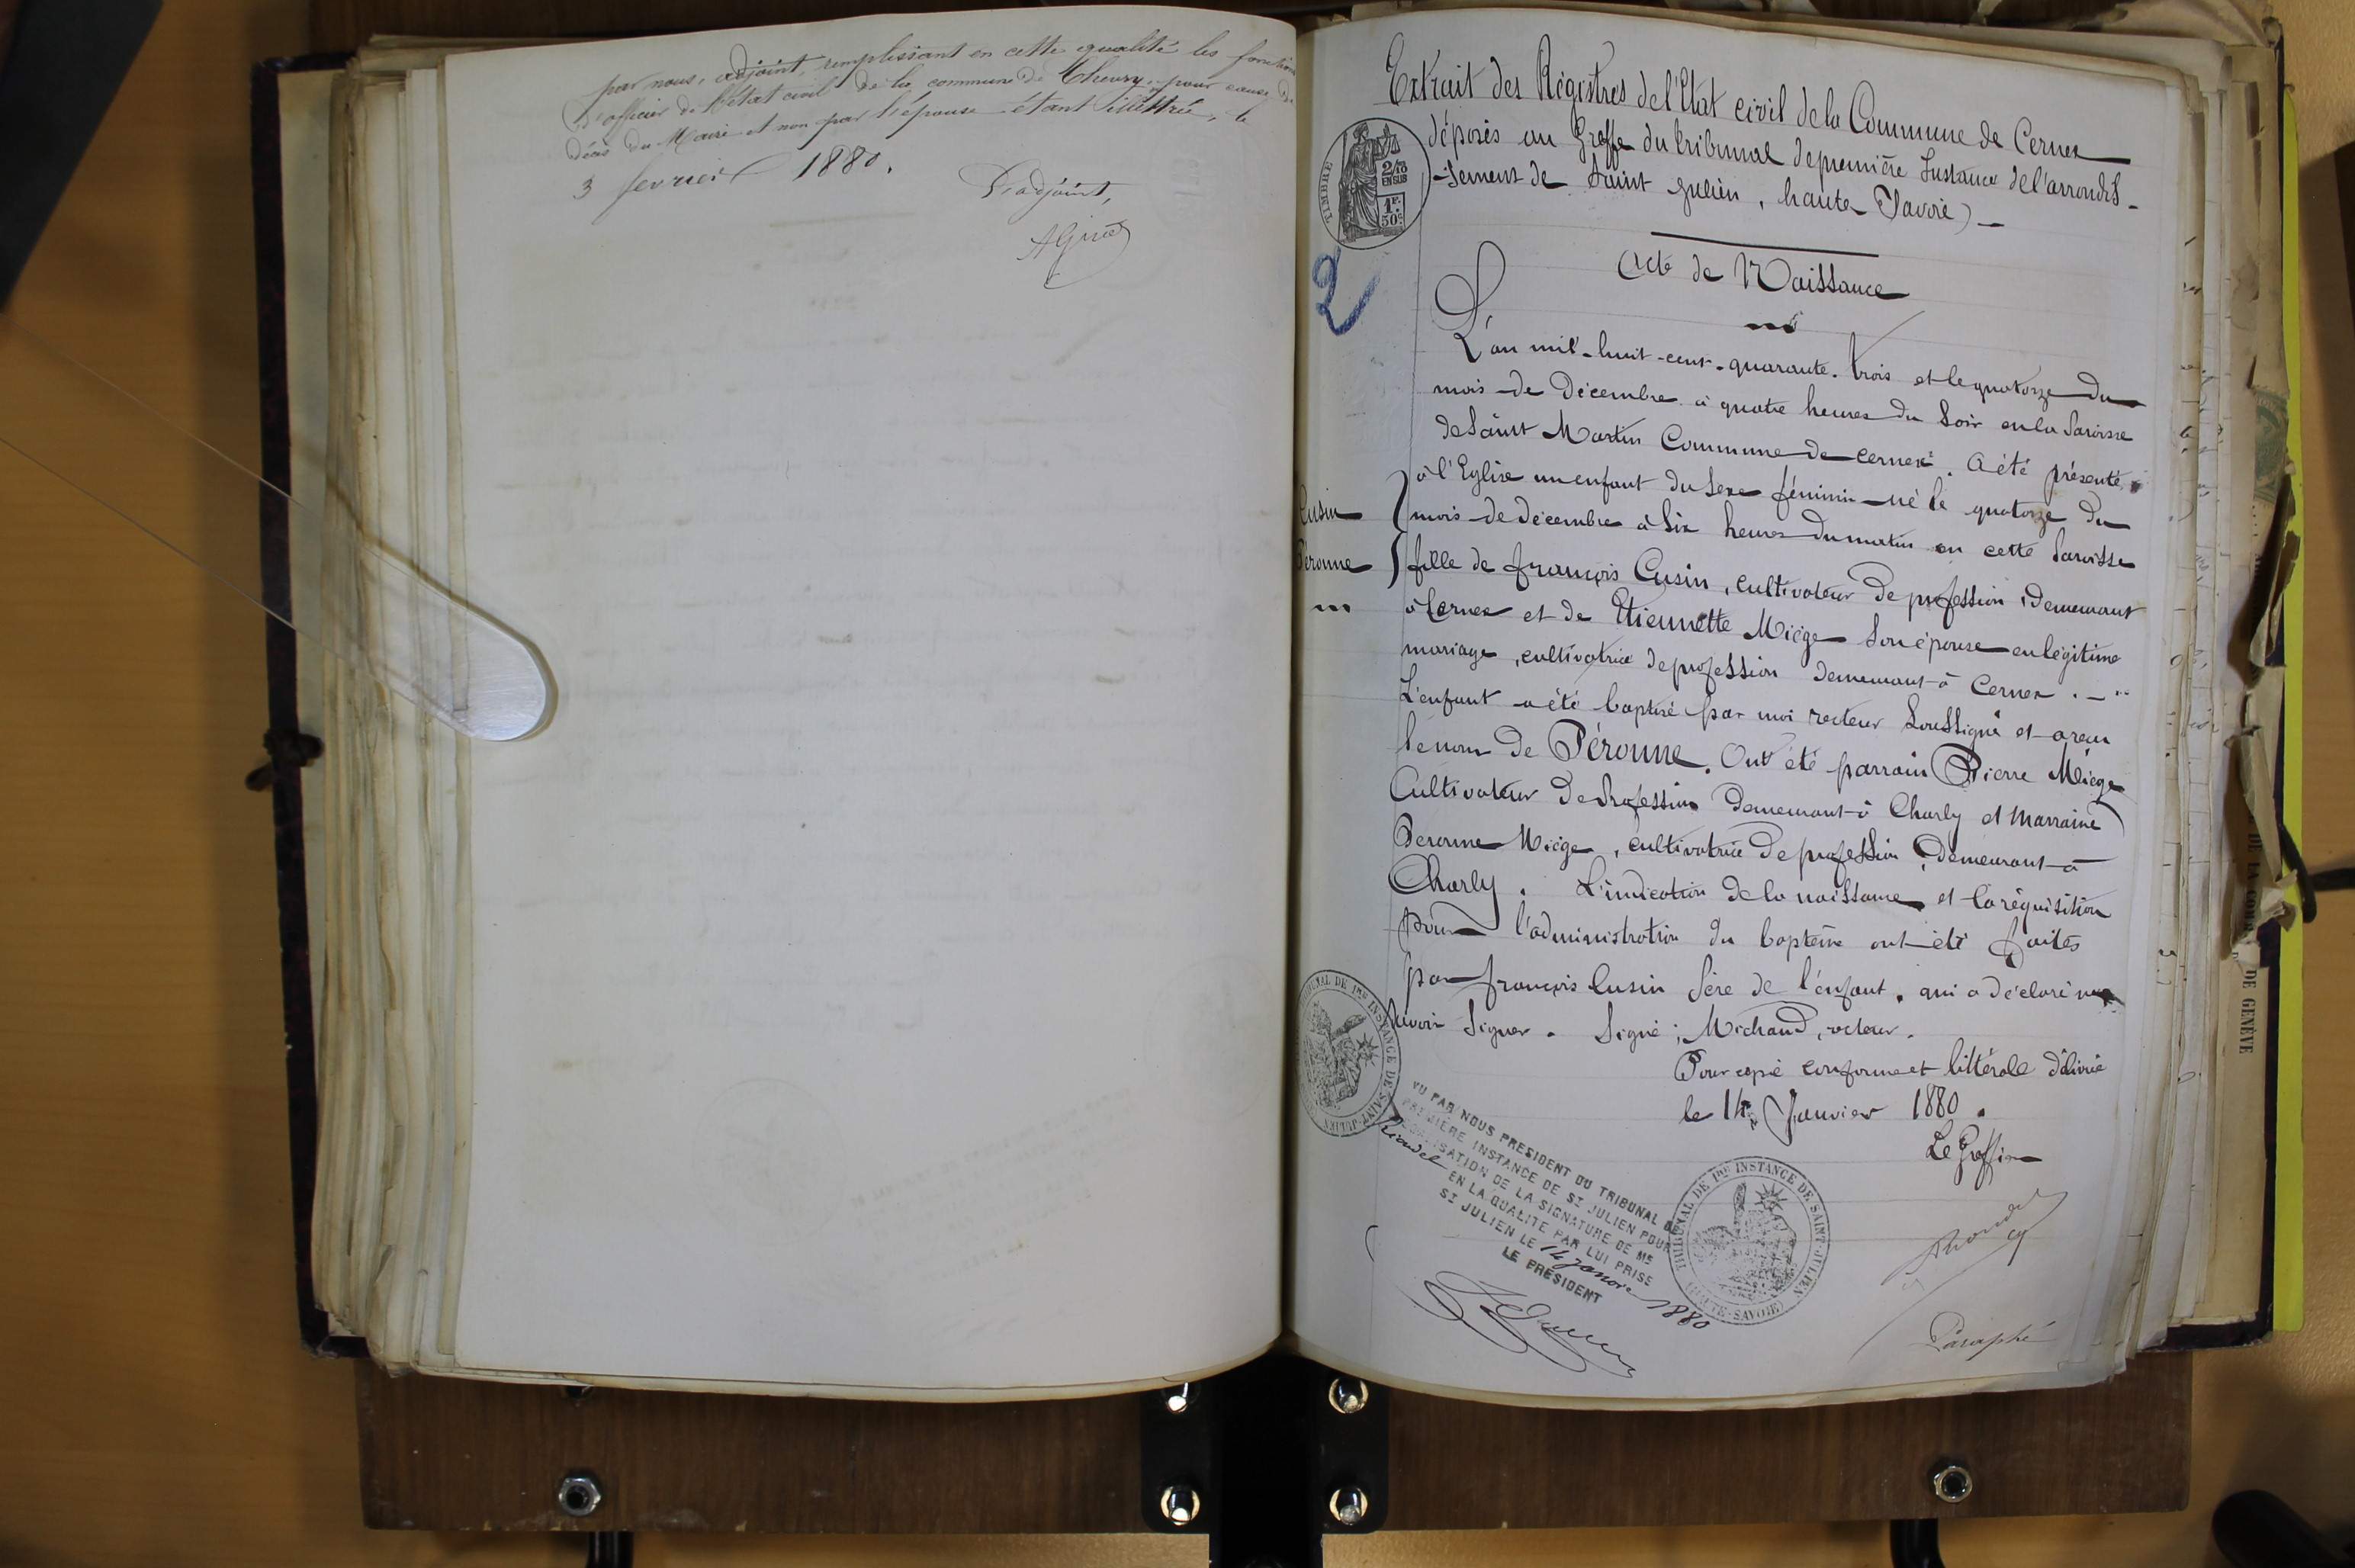 par nous, adjoint, remplissant en cette qualité les fonctions
d'officier de l'état civil de la commune de Chevry, pour cause de
décès du Maire et non par l'épouse étant illettrée, le
3 fevrier 1880.
L'adjoint,
AGirod
Extrait des Régistres de l'Etat civil de la Commune de Cernex
déposés au Greffe du tribunal de première Instance de l'arrondis-
-sement de Saint Julien, haute Savoie) -
TIMBRE
2/10
EN SUS
1F.
50c
2
Acte de Naissance
L'an mil-huit-cent-quarante-trois et le quatorze du
mois de Décembre à quatre heures du soir en la Paroisse
de Saint Martin Commune de Cernex. A été présenté
à l'Eglise un enfant du sexe féminin né le quatorze du
Cusin
mois de décembre à six heures du matin en cette Paroisse
Péronne
fille de françois Cusin, cultivateur de profession, demeurant
à Cernex et de Etiennette Miège son épouse en légitime
mariage, cultivatrice de profession demeurant à Cernex. -
L'enfant a été baptisé par moi recteur soussigné et a reçu
le nom de Péronne. Ont été parrain Pierre Miège
Cultivateur de Profession demeurant à Charly et Marraine
Peronne Miège, cultivatrice de profession, demeurant à
Charly. L'indication de la naissance et la réquisition
pour l'administration du baptême ont été faites
par françois Cusin Père de l'enfant, qui a déclaré ne
savoir signer. Signé; Michaud, recteur.
Pour copie conforme et littérale délivrée
le 14 Janvier 1880.
Le Greffier
TRIBUNAL DE 1RE INSTANCE DE SAINT-JULIEN
VU PAR NOUS PRESIDENT DU TRIBUNAL DE
PREMIÈRE INSTANCE DE ST JULIEN POUR
LEGALISATION DE LA SIGNATURE DE ME
EN LA QUALITE PAR LUI PRISE
ST JULIEN LE 14 janvier 1880
LE PRESIDENT
TRIBUNAL DE 1RE INSTANCE DE SAINT-JULIEN
(HAUTE-SAVOIE)
Paraphé
DE GENÈVE